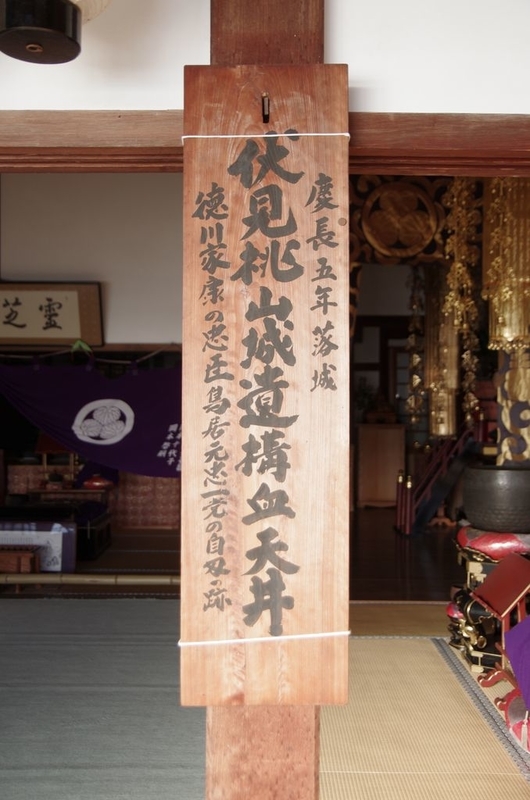 慶長五年落城
伏見桃山城遺構血天井
徳川家康の忠臣鳥居元忠一党の自刃の跡
靈芝